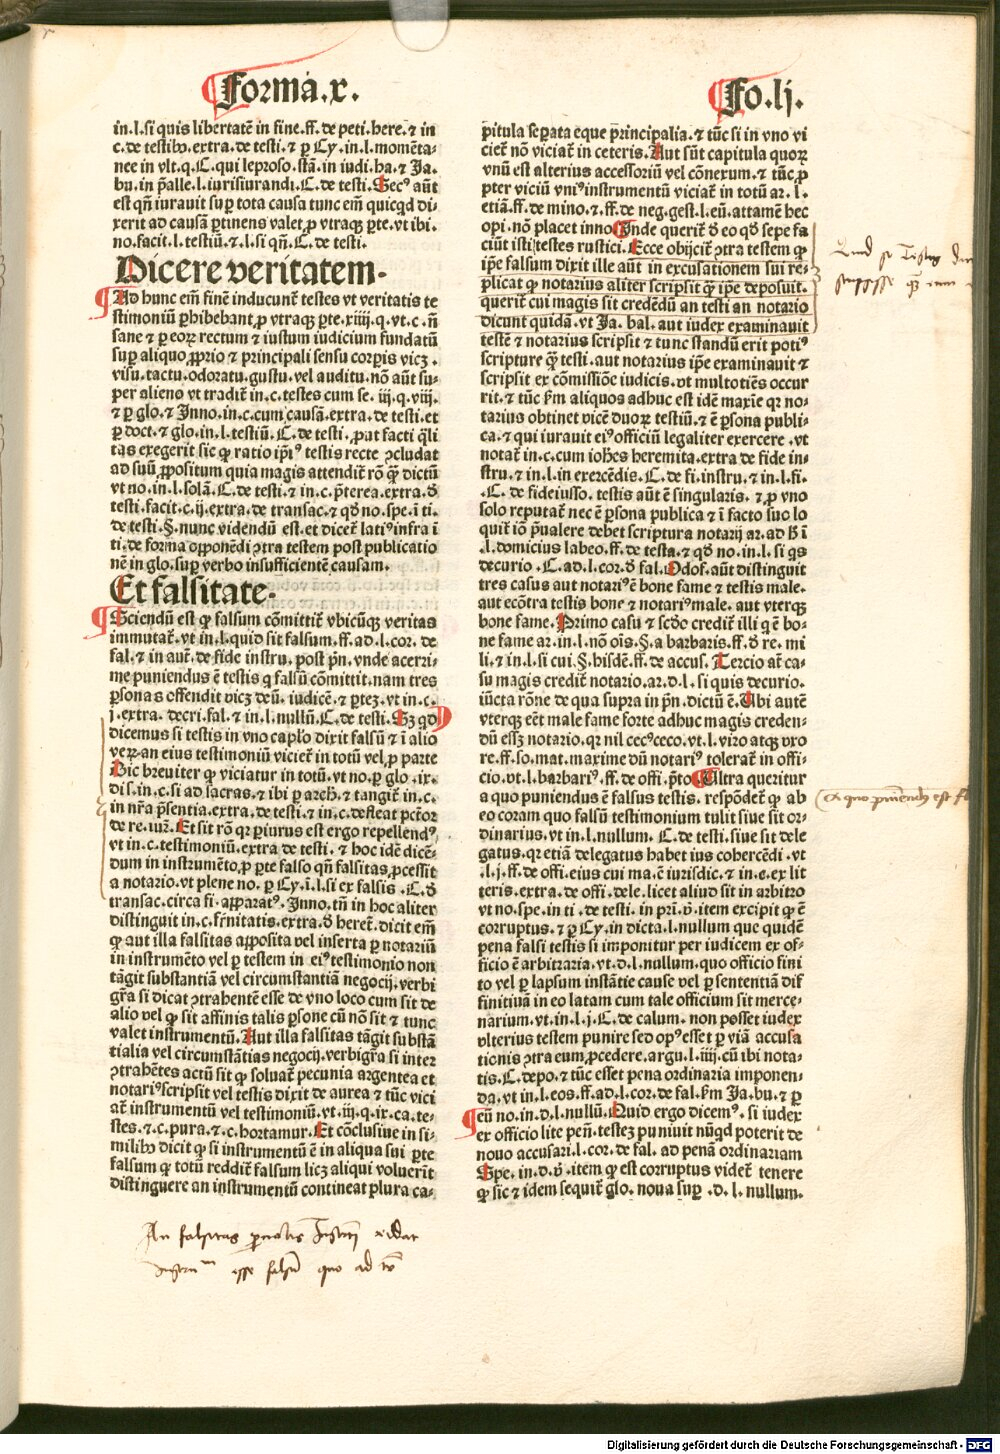 Forma.x.
Fo.lj.
in.l.si quis libertatē in fine.ff.de peti.here.⁊ in
c.de testibꝰ.extra.de testi.⁊ ꝑ Cy.in.l.momēta-
nee in vlt.q.C.qui leproso.stā.in iudi.ba.⁊ Ja.
bu.in p̄alle.l.iurisiurandi.C.de testi.Secꝰ aūt
est qn̄ iurauit suꝑ tota causa tunc em̄ quicqd di-
xerit ad causā ꝑtinens valet ꝓ vtraqꝫ ꝑte.vt ibi.
no.facit.l.testiū.⁊.l.si qn̄.C.de testi.
Dicere veritatem.
Ad hunc em̄ finē inducunt̄ testes vt veritatis te
stimoniū ꝑhibebant ꝓ vtraqꝫ ꝑte.xiiij.q.vt.c.n̄
sane ⁊ ꝑ eoꝝ rectum ⁊ iustum iudicium fundatū
suꝑ aliquo ꝓprio ⁊ principali sensu corꝑis vicꝫ.
visu.tactu.odoratu.gustu.vel auditu.nō aūt su-
per alieno vt tradit̄ in.c.testes cum se. iij.q.viij.
⁊ ꝑ glo.⁊ Inno.in.c.cum causā.extra.de testi.et
ꝑ doct.⁊ glo.in.l.testiū.C.de testi.ꝓat facti q̄li
tas exegerit sic ꝙ ratio ip̄iꝰ testis recte ꝯcludat
ad suū ꝓpositum quia magis attendit̄ rō q̄ dictū
vt no.in.l.solā.C.de testi.⁊ in.c.p̄terea.extra.ð
testi.facit.c.ij.extra.de transac.⁊ qð no.spe.ī ti.
de testi.§.nunc videndū est.et dicet̄ latiꝰ infra ī
ti.de forma opponēdi ꝯtra testem post publicatio
nē in glo.suꝑ verbo insufficientē causam.
Et falsitate.
Sciendū est ꝙ falsum cōmittit̄ vbicūqꝫ veritas
immutat̄.vt in.l.quid sit falsum.ff.ad.l.cor.de
fal.⁊ in aut̄.de fide instru.post pn̄.vnde acerri-
me puniendus ē testis q falsū cōmittit.nam tres
ꝑsonas offendit vicꝫ deū.iudicē.⁊ ꝑteꝫ.vt in.c.
j.extra.de cri.fal.⁊ in.l.nullū.C.de testi.Sꝫ qd
dicemus si testis in vno caplo dixit falsū ⁊ ī alio
veꝝ an eius testimoniū viciet̄ in totū vel ꝓ parte
Dic breuiter ꝙ viciatur in totū.vt no.ꝑ glo.ix.
dis.in.c.si ad sacras.⁊ ibi ꝑ arch.⁊ tangit̄ in.c.
in nr̄a p̄sentia.extra.de testi.⁊ in.c.defleat pctor
de re.iur̄.Et sit rō qr ꝑiurus est ergo repellendꝰ
vt in.c.testimoniū.extra de testi. ⁊ hoc idē dicē-
dum in instrumēto ꝓ ꝑte falso qn̄ falsitas ꝓcessit
a notario.vt plene no. ꝑ Cy.ī.l.si ex falsis.C.ð
transac.circa fi.apparatꝰ.Inno.tn̄ in hoc aliter
distinguit in.c.fr̄nitatis.extra.ð heret̄.dicit em̄
ꝙ aut illa falsitas apposita vel inserta ꝑ notariū
in instrumēto vel ꝑ testem in eiꝰ testimonio non
tāgit substantiā vel circumstantiā negocij.verbi
gr̄a si dicat ꝯtrahentē esse de vno loco cum sit de
alio vel ꝙ sit affinis talis ꝑsone cū nō sit ⁊ tunc
valet instrumentū.Aut illa falsitas tāgit substā
tialia vel circumstātias negocij.verbigr̄a si inter
ꝯtrahētes actū sit ꝙ soluat̄ pecunia argentea et
notariꝰ scripsit vel testis dixit de aurea ⁊ tūc vici
at̄ instrumentū vel testimoniū.vt.iij.q.ix.ca.te-
stes.⁊.c.pura.⁊.c.hortamur.Et cōclusiue in si-
milibꝰ dicit ꝙ si instrumentū ē in aliqua sui ꝑte
falsum ꝙ totū reddit̄ falsum licꝫ aliqui voluerīt
distinguere an instrumentū contineat plura ca-
pitula seꝑata eque principalia.⁊ tūc si in vno vi
ciet̄ nō viciat̄ in ceteris.Aut sūt capitula quoꝝ
vnū est alterius accessoriū vel cōnexum.⁊ tūc ꝓ
pter viciū vniꝰ instrumentū viciat̄ in totū ar.l.
etiā.ff.de mino.⁊ ff.de neg.gest.l.eū.attamē hec
opi.nō placet inno.Inde querit̄ ð eo qð sepe fa
ciūt isti testes rustici.Ecce obijcit̄ ꝯtra testem ꝙ
ip̄e falsum dixit ille aūt in excusationem sui re-
plicat ꝙ notarius aliter scripsit q̄ ip̄e deposuit.
querit̄ cui magis sit credēdū an testi an notario
dicunt quidā.vt Ja.bal.aut iudex examinauit
testē ⁊ notarius scripsit ⁊ tunc standū erit potiꝰ
scripture q̄ testi.aut notarius ip̄e examinauit ⁊
scripsit ex cōmissiōe iudicis.vt multotiēs occur
rit.⁊ tūc ẜm aliquos adhuc est idē maxīe qr no-
tarius obtinet vicē duoꝝ testiū.⁊ ē ꝑsona publi-
ca.⁊ qui iurauit eiꝰ officiū legaliter exercere.vt
notat̄ in.c.cum ioh̄es heremita.extra de fide in-
stru.⁊ in.l.in exercēdis.C.de fi.instru.⁊ in.l.fi.
.C.de fideiusso.testis aūt ē singularis.⁊ ꝓ vno
solo reputat̄ nec ē ꝑsona publica ⁊ ī facto suo lo
quit̄ iō p̄ualere debet scriptura notarij ar.ad ħ ī
.l.domicius labeo.ff.de testa.⁊ qð no.in.l.si qs
decurio.C.ad.l.cor.ð fal.Odof.aūt distinguit
tres casus aut notariꝰ ē bone fame ⁊ testis male.
aut ecōtra testis bone ⁊ notariꝰ male.aut vterqꝫ
bone fame.Primo casu ⁊ scðo credit̄ illi q ē bo-
ne fame ar.in.l.nō oīs.§.a barbaris.ff.ð re.mi
li.⁊ in.l.si cui.§.hisdē.ff.de accus.Tercio at̄ ca-
su magis credit̄ notario.ar.d.l.si quis decurio.
iūcta rōne de qua supra in pn̄.dictū ē.Ubi autē
vterqꝫ eēt male fame forte adhuc magis creden-
dū essꝫ notario.qr nil cecꝰ ceco.vt.l.viro atqꝫ vxo
re.ff.so.mat.maxime dū notariꝰ tolerat̄ in offi-
cio.vt.l.barbariꝰ.ff.de offi.p̄to.Ultra queritur
a quo puniendus ē falsus testis.respōdet̄ ꝙ ab
eo coram quo falsū testimonium tulit siue sit or-
dinarius.vt in.l.nullum. C.de testi.siue sit dele
gatus.qr etiā delegatus habet ius cohercēdi.vt
.l.j.ff.de offi.eius cui ma.ē iurisdic.⁊ in.c.ex lit
teris.extra.de offi.dele.licet aliud sit in arbitro
vt no.spe.in ti.de testi.in pri.v̄.item excipit ꝙ ē
corruptus.⁊ ꝑ Cy.in dicta.l.nullum que quidē
pena falsi testis si imponitur per iudicem ex of-
ficio ē arbitraria.vt.d.l.nullum.quo officio fini
to vel ꝑ lapsum instātie cause vel ꝑ sententiā dif
finitiuā in eo latam cum tale officium sit merce-
narium.vt.in.l.j.C.de calum.non posset iudex
vlterius testem punire sed opꝰ esset ꝑ viā accusa
tionis ꝯtra eum ꝓcedere.argu.l.iiij.cū ibi nota-
tis.C.depo.⁊ tūc esset pena ordinaria imponen-
da.vt in.l.eos.ff.ad.l.cor.de fal.ẜm Ja.bu.⁊ ꝑ
eū no.in.d.l.nullū.Quid ergo dicemꝰ.si iudex
ex officio lite pen̄.testeꝫ puniuit nūqd poterit de
nouo accusari.l.cor.de fal.ad penā ordinariam
Spe.in.d.v̄.item ꝙ est corruptus videt̄ tenere
ꝙ sic ⁊ idem sequit̄ glo.noua suꝑ.d.l.nullum.
An falsitas
esse falsū quo ad